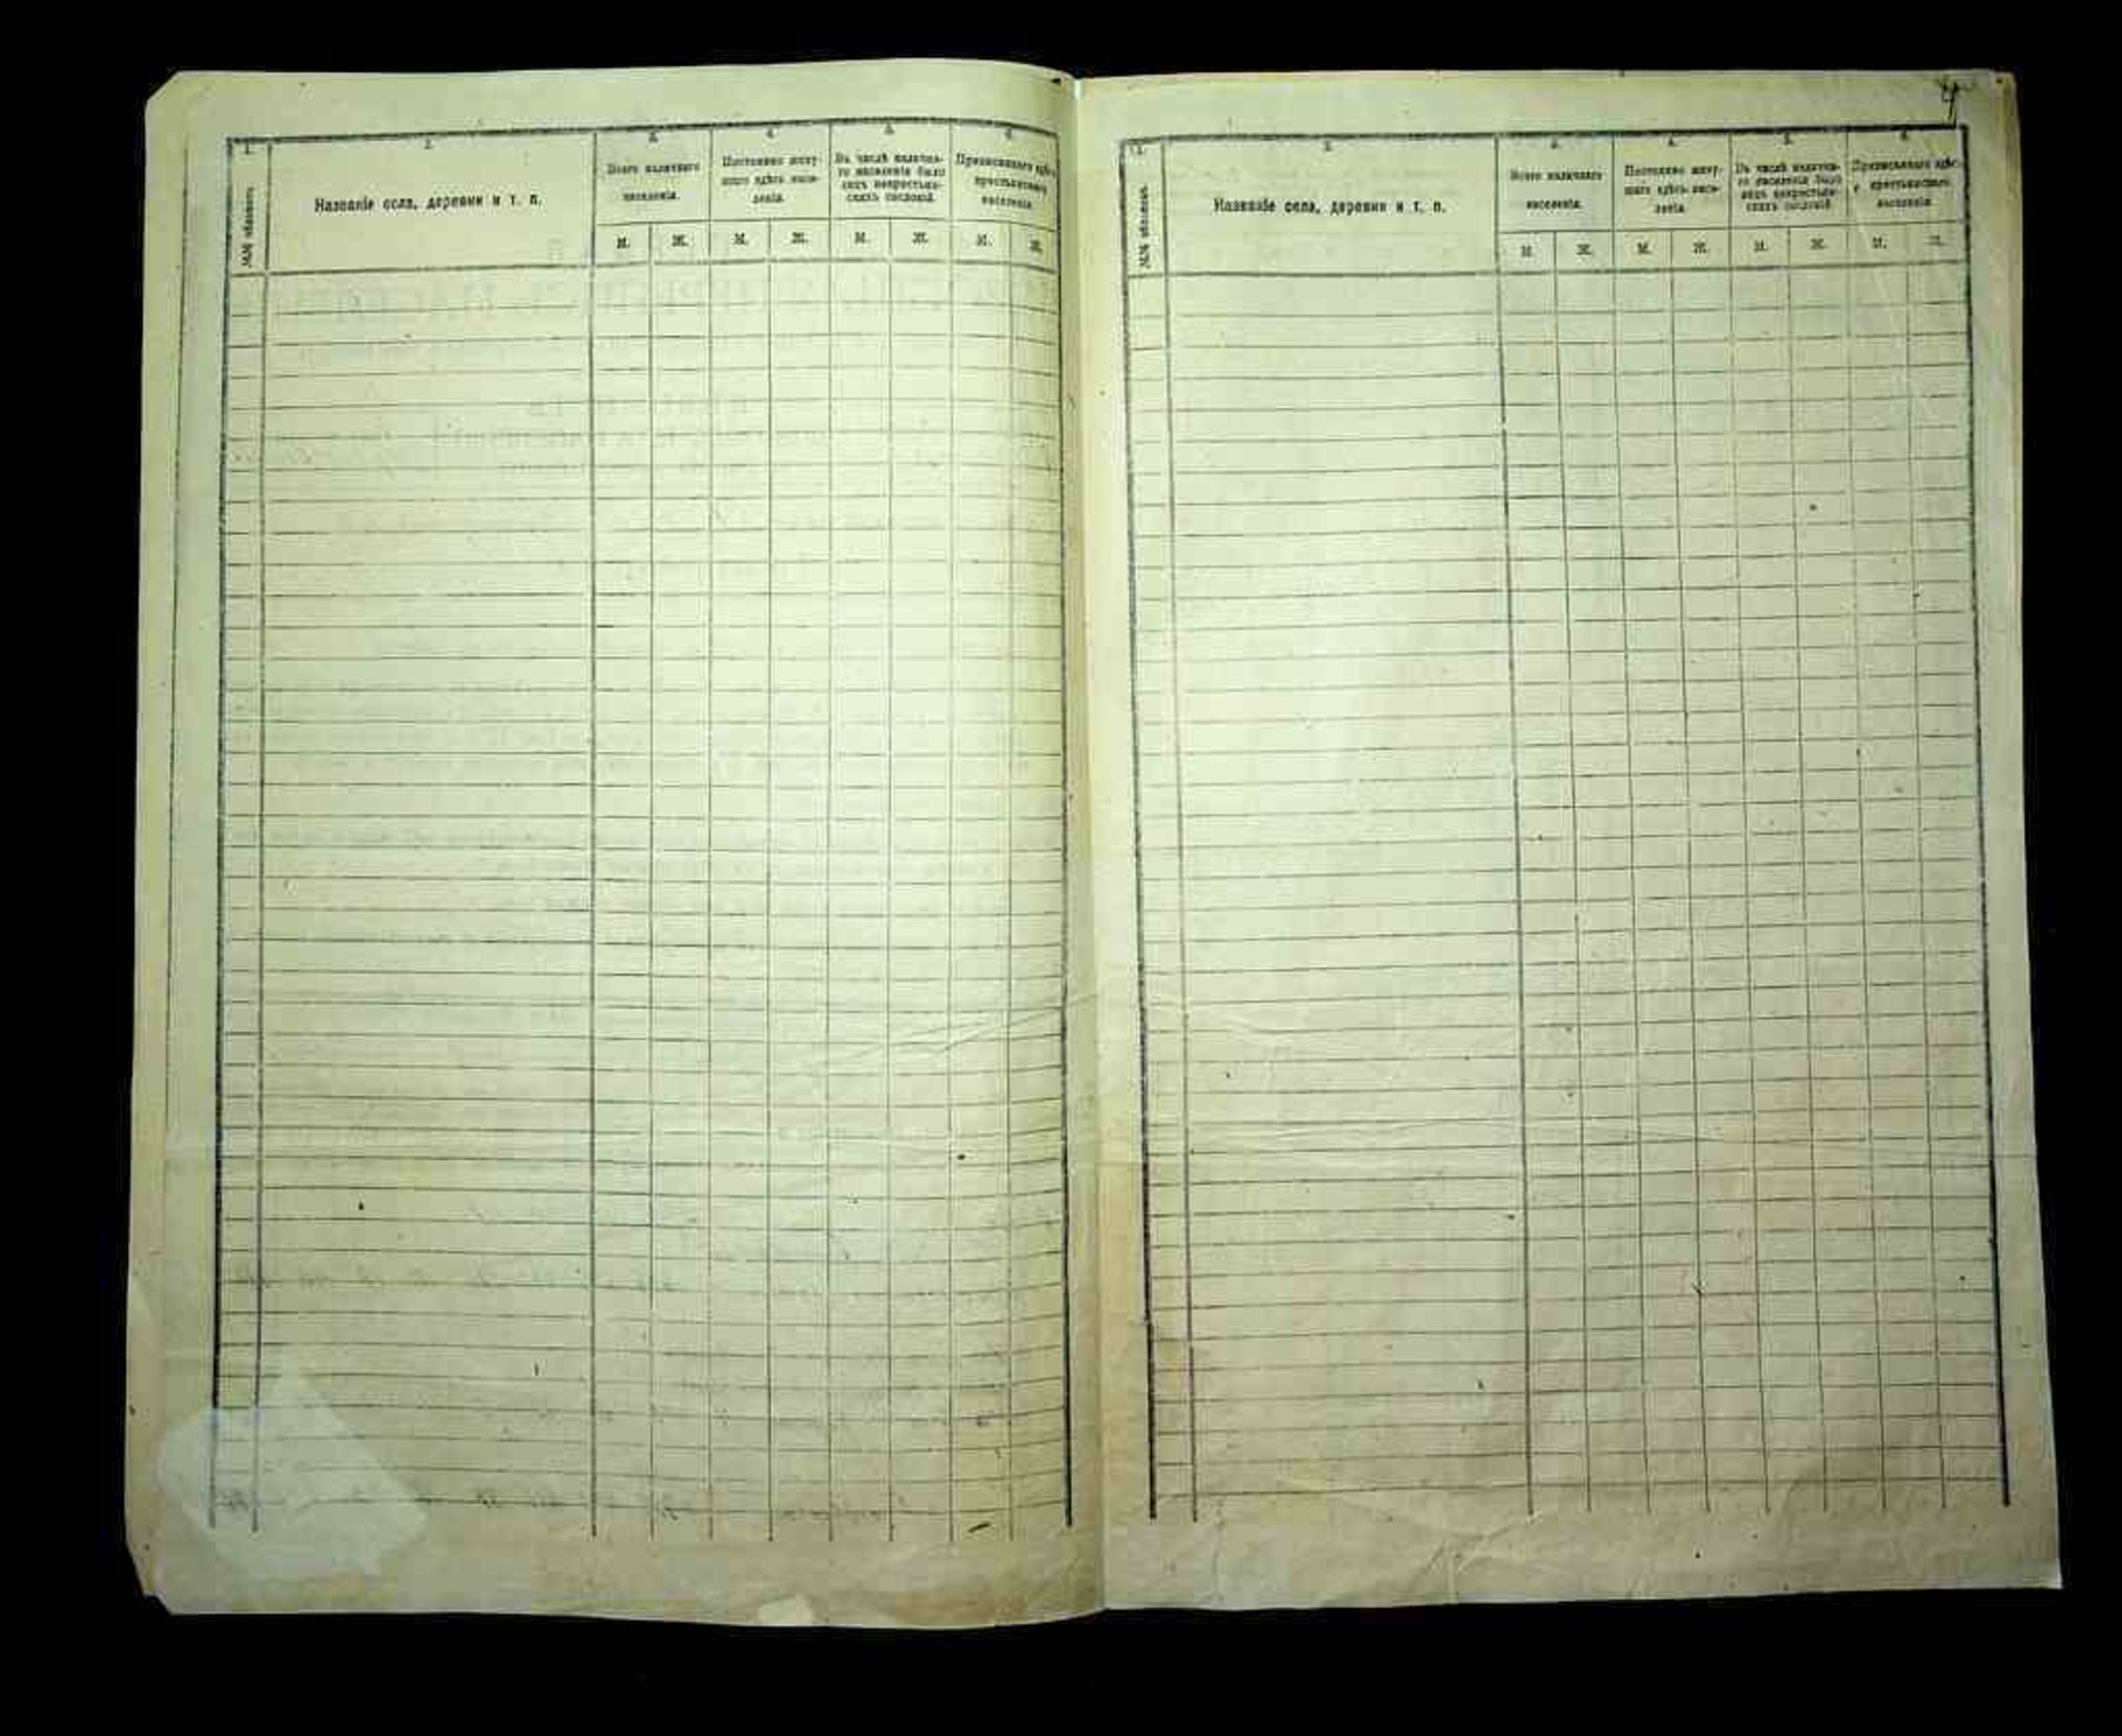 1.
2.
3.
4.
5.
6.
№№
Названіе села, деревни и т. п.
Всего наличнаго
населенія.
Постоянно живу-
щаго здѣсь насе-
ленія.
Въ числѣ налична-
го населенія было
лицъ некрестьян-
скихъ сословій.
Приписаннаго здѣсь
крестьянскаго
населенія.
М. Ж. М. Ж. М. Ж. М. Ж.
4
1.
2.
3.
4.
5.
6.
№№
Названіе села, деревни и т. п.
Всего наличнаго
населенія.
Постоянно живу-
щаго здѣсь насе-
ленія.
Въ числѣ налична-
го населенія было
лицъ некрестьян-
скихъ сословій.
Приписаннаго здѣс-
крестьянскаго
населенія.
М. Ж. М. Ж. М. Ж. М. Ж.